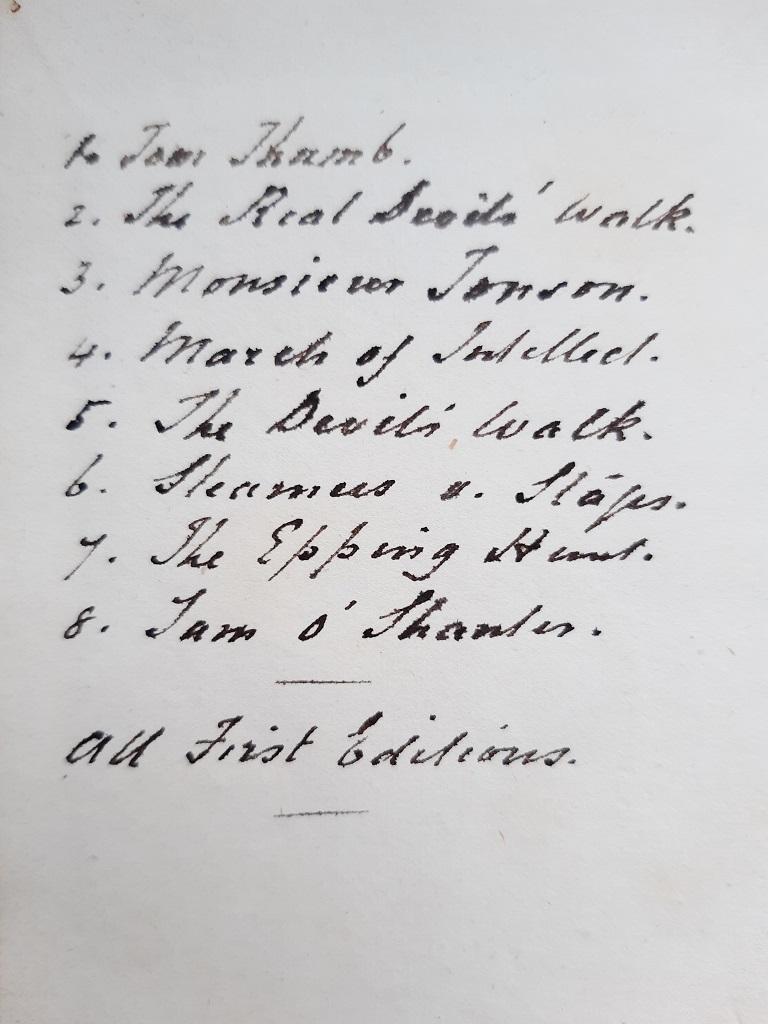 1. Tom Thumb.
2. The Real Devils' Walk.
3. Monsieur Tonson.
4. March of Intellect.
5. The Devils' Walk.
6. Steamers v. Stages.
7. The Epping Hunt.
8. Tam O' Shanter.
All First Editions.